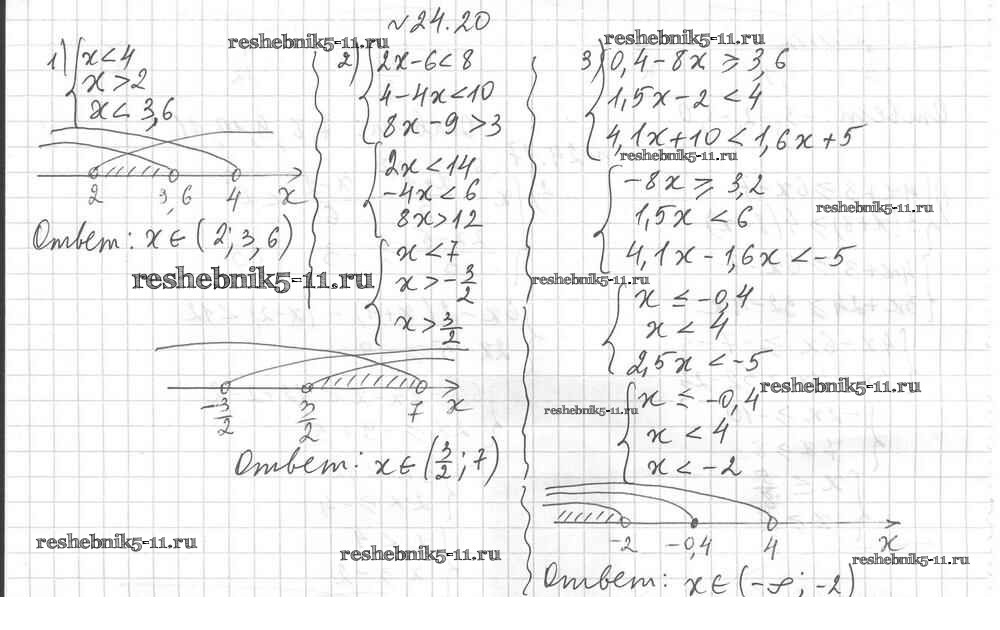 №24.20
reshebnik5-11.ru
reshebnik5-11.ru
1) { x < 4
x > 2
x < 3,6
2 3,6 4 x
Ответ: x ∈ (2; 3,6)
reshebnik5-11.ru
2) { 2x - 6 < 8
4 - 4x < 10
8x - 9 > 3
{ 2x < 14
-4x < 6
8x > 12
{ x < 7
x > -3/2
x > 3/2
-3/2 3/2 7 x
Ответ: x ∈ (3/2; 7)
3) { 0,4 - 8x ⩾ 3,6
1,5x - 2 < 4
4,1x + 10 < 1,6x + 5
reshebnik5-11.ru
{ -8x ⩾ 3,2
reshebnik5-11.ru
1,5x < 6
4,1x - 1,6x < -5
reshebnik5-11.ru
{ x ≤ -0,4
x < 4
2,5x < -5
reshebnik5-11.ru
{ x ≤ -0,4
reshebnik5-11.ru
x < 4
x < -2
-2 -0,4 4 x
reshebnik5-11.ru
reshebnik5-11.ru
reshebnik5-11.ru
Ответ: x ∈ (-∞; -2)